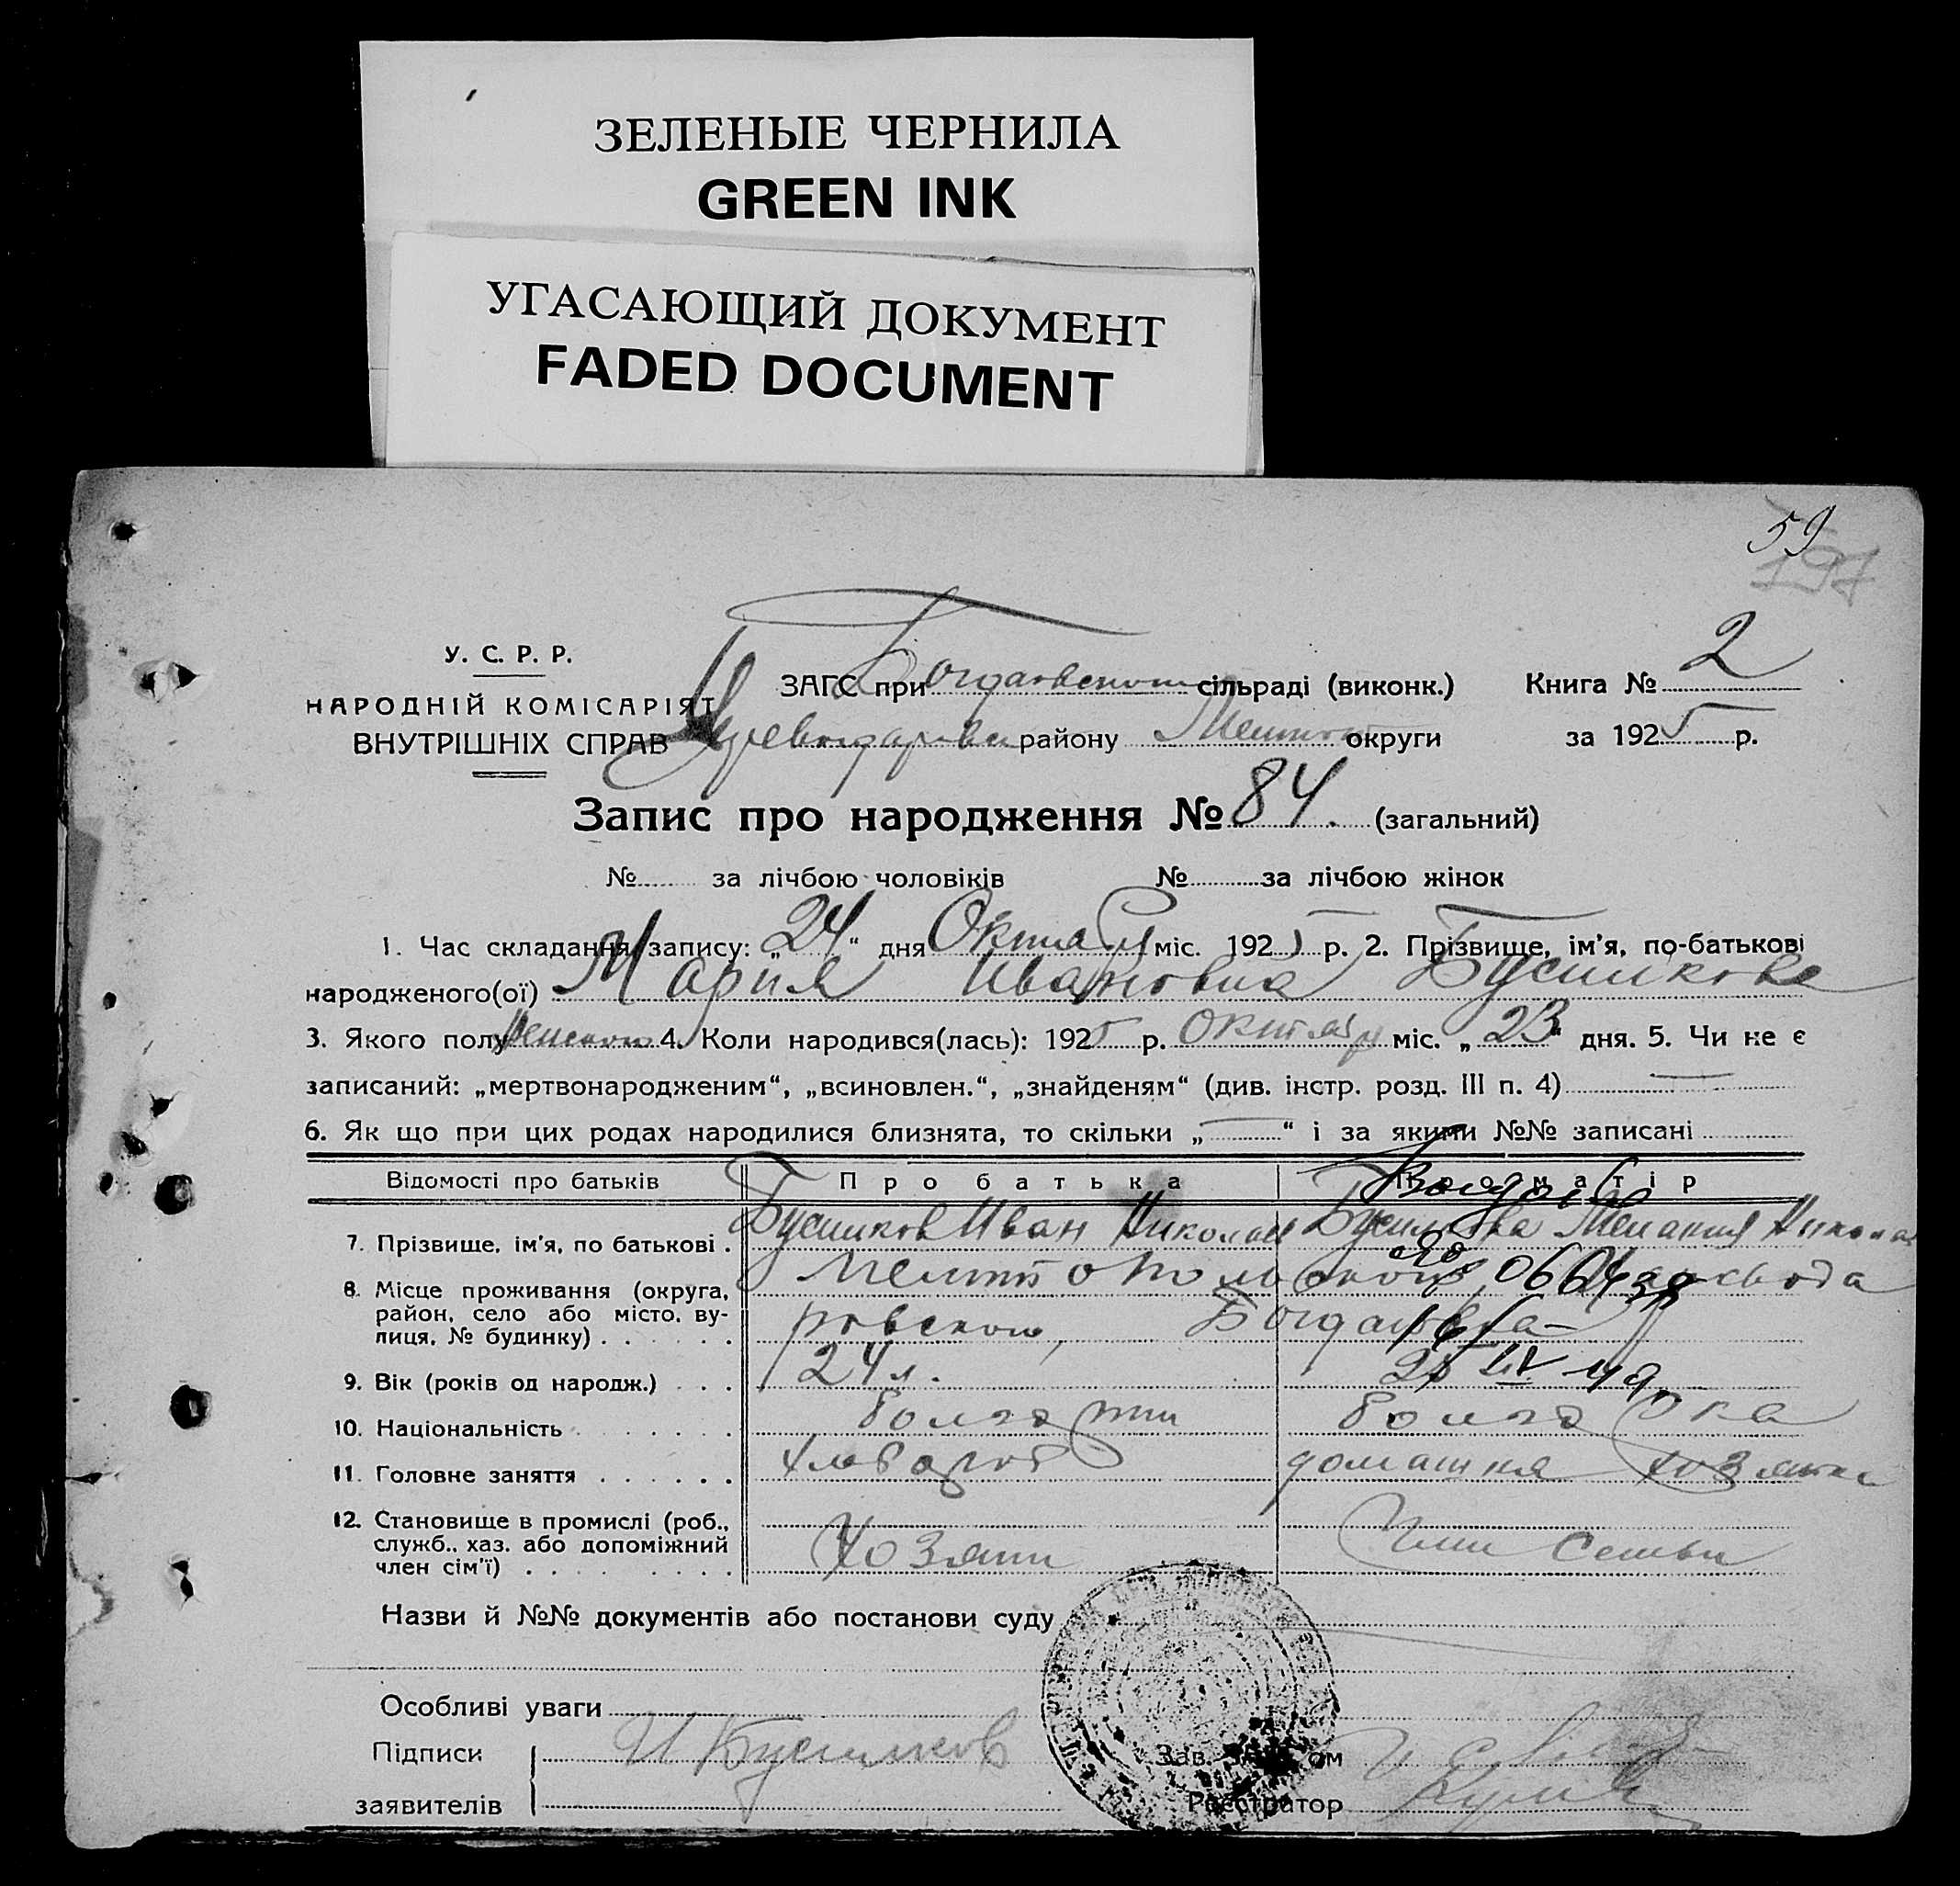 ЗЕЛЕНЫЕ ЧЕРНИЛА
GREEN INK
УГАСАЮЩИЙ ДОКУМЕНТ
FADED DOCUMENT
59
197
У. С. Р. Р.
НАРОДНІЙ КОМІСАРІЯТ
ВНУТРІШНІХ СПРАВ
ЗАГС при Богдановском сільраді (виконк.) Книга № 2
району Мелит округи за 1925 р.
Запис про народження № 84. (загальний)
№ за лічбою чоловіків № за лічбою жінок
1. Час складання запису: „24“ дня Октября міс. 1925 р. 2. Прізвище, ім'я, по-батькові
народженого(ої) Мария Ивановна Бусликова
3. Якого полу Женского 4. Коли народився(лась): 1925 р. Октября міс. „23“ дня. 5. Чи не є
записаний: „мертвонародженим“, „всиновлен.“, „знайденям“ (див. інстр. розд. III п. 4)
6. Як що при цих родах народилися близнята, то скільки „—“ і за якими №№ записані
Відомості про батьків Про батька Про матір
7. Прізвище, ім'я, по батькові . Иван Никола Мелания Никола
8. Місце проживання (округа, район, село або місто, вулиця, № будинку) Мелитопольского, ровском, Богдановка
9. Вік (років од народж.) 24 л. IV 49
10. Національність болгарин болгарка
11. Головне заняття хлебороб домашняя хозяйка
12. Становище в промислі (роб., служб., хаз. або допоміжний член сім'ї) Хозяин Член семьи
Назви й №№ документів або постанови суду
Особливі уваги
Підписи
заявителів
Зав. ом
Реєстратор